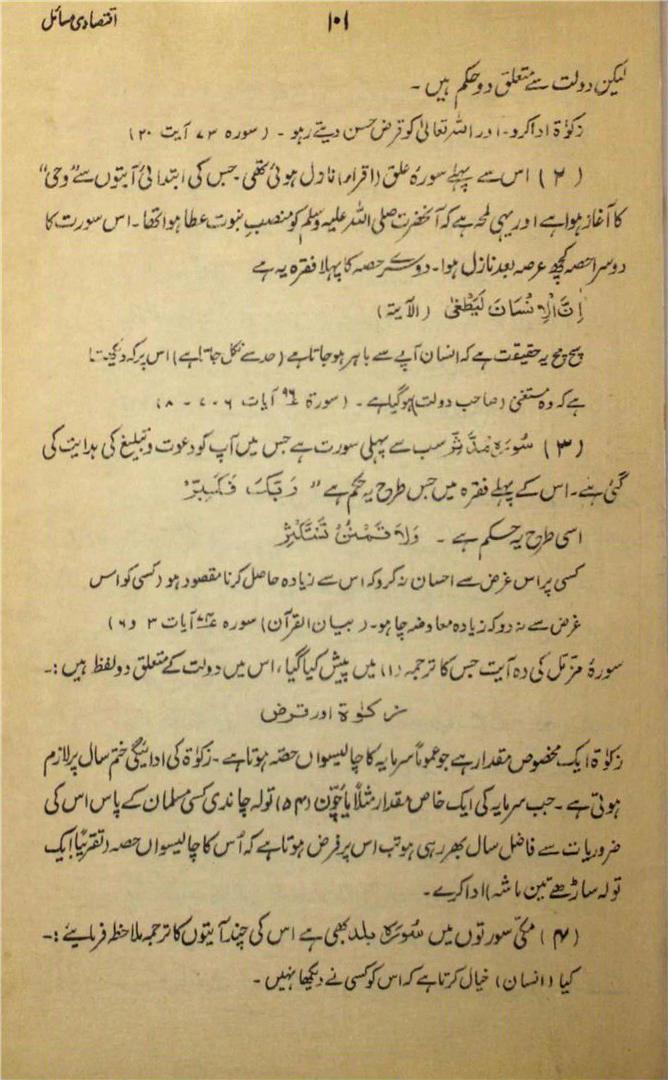 ۱۰۱ اقتصادی مسائل
لیکن دولت سے متعلق دو حکم ہیں ۔
زکوٰۃ ادا کرو۔ اور اللہ تعالیٰ کو قرض حسن دیتے رہو ۔ (سورہ ۷۳ آیت ۲۰)
(۲) اس سے پہلے سورہ علق (اقراء) نازل ہوئی تھی ۔ جس کی ابتدائی آیتوں سے "وحی"
کا آغاز ہوا ہے اور یہی لمحہ ہے کہ آنحضرت صلی اللہ علیہ وسلم کو منصب نبوت عطا ہوا تھا۔ اس سورت کا
دوسرا حصہ کچھ عرصہ بعد نازل ہوا۔ دوسرے حصہ کا پہلا فقرہ یہ ہے
اِنَّ الْاِنْسَانَ لَیَطْغٰی (الآیۃ)
سچ مچ یہ حقیقت ہے کہ انسان آپے سے باہر ہو جاتا ہے (حد سے نکل جاتا ہے) اس پر کہ دیکھتا
ہے کہ وہ مستغنی (صاحب دولت) ہو گیا ہے ۔ (سورۃ ۹۶ آیات ۶ ۔ ۷ ۔ ۸)
(۳) سُورہ مدَّثِّر سب سے پہلی سورت ہے جس میں آپ کو دعوت و تبلیغ کی ہدایت کی
گئی ہے ۔ اس کے پہلے فقرہ میں جس طرح یہ حکم ہے "وَ رَبَّکَ فَکَبِّرْ
اسی طرح یہ حکم ہے ۔ وَلَا تَمْنُنْ تَسْتَکْثِرُ
کسی پر اس غرض سے احسان نہ کرو کہ اس سے زیادہ حاصل کرنا مقصود ہو (کسی کو اس
غرض سے نہ دو کہ زیادہ معاوضہ چاہو۔ (بیان القرآن) سورہ ۷۴ آیات ۳ و ۶)
سورۂ مزّمل کی وہ آیت جس کا ترجمہ (۱) میں پیش کیا گیا، اس میں دولت کے متعلق دو لفظ ہیں :۔
زکوٰۃ اور قرض
زکوٰۃ ایک مخصوص مقدار ہے جو عموماً سرمایہ کا چالیسواں حصّہ ہوتا ہے ۔ زکوٰۃ کی ادائیگی ختم سال پر لازم
ہوتی ہے ۔ جب سرمایہ کی ایک خاص مقدار مثلاً چوّن (۵۴) تولہ چاندی کسی مسلمان کے پاس اس کی
ضروریات سے فاضل سال بھر رہی ہو تب اس پر فرض ہوتا ہے کہ اُس کا چالیسواں حصہ (تقریباً ایک
تولہ ساڑھے تین ماشہ) ادا کرے ۔
(۴) مکّی سورتوں میں سُورہ بلد بھی ہے اس کی چند آیتوں کا ترجمہ ملاحظہ فرمایئے :۔
کیا (انسان) خیال کرتا ہے کہ اس کو کسی نے دیکھا نہیں ۔